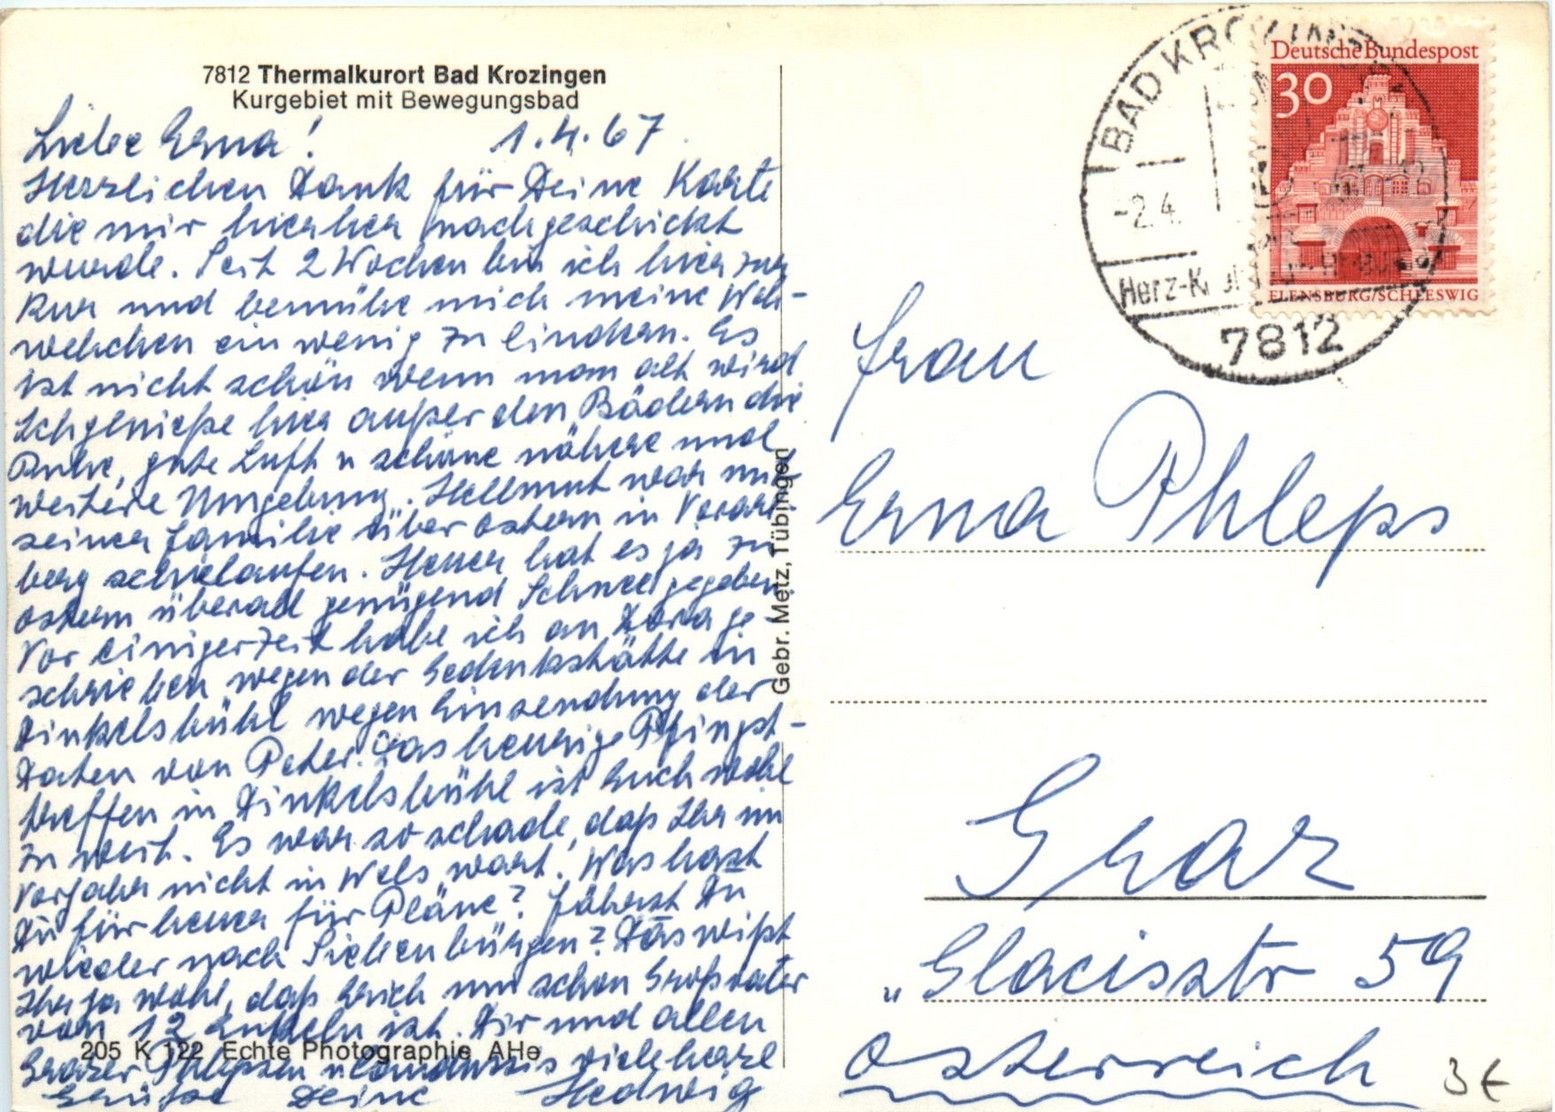 7812 Thermalkurort Bad Krozingen
Kurgebiet mit Bewegungsbad
Liebe Erna! 1.4.67
Herzlichen Dank für Deine Karte
die mir hierher nachgeschickt
wurde. Seit 2 Wochen bin ich hier zur
Kur und bemühe mich meine Weh-
wehchen ein wenig zu lindern. Es
ist nicht schön wenn man alt wird
Ich genieße hier außer den Bädern die
Ruhe, gute Luft u schöne nähere und
weitere Umgebung. Hellmut war mit
seiner Familie über Ostern in Vorarl-
berg schielaufen. Heuer hat es ja zu
Ostern überall genügend Schnee gegeben.
Vor einiger Zeit habe ich an Dora ge-
schrieben wegen der Gedenkstätte in
Dinkelsbühl wegen Einsendung der
Daten von Peter. Das heurige Pfingst-
treffen in Dinkelsbühl ist Euch wohl
zu weit. Es war so schade, daß Ihr im
Vorjahr nicht in Wels wart. Was hast
Du für heuer für Pläne? Fährst Du
wieder nach Siebenbürgen? Das wißt
Ihr ja wohl, daß Erich nun schon Großvater
von 12 Enkeln ist. Dir und allen
Grazer Phlepsen u viele herzl
Grüße Deine Hedwig
205 K 122 Echte Photographie AHe
Gebr. Metz, Tübingen
BAD KROZINGEN
-2.4.
Herz-
7812
Deutsche Bundespost
30
FLENSBURG/SCHLESWIG
Frau
Erna Phleps
Graz
„Glacisstr 59
Österreich
3 €